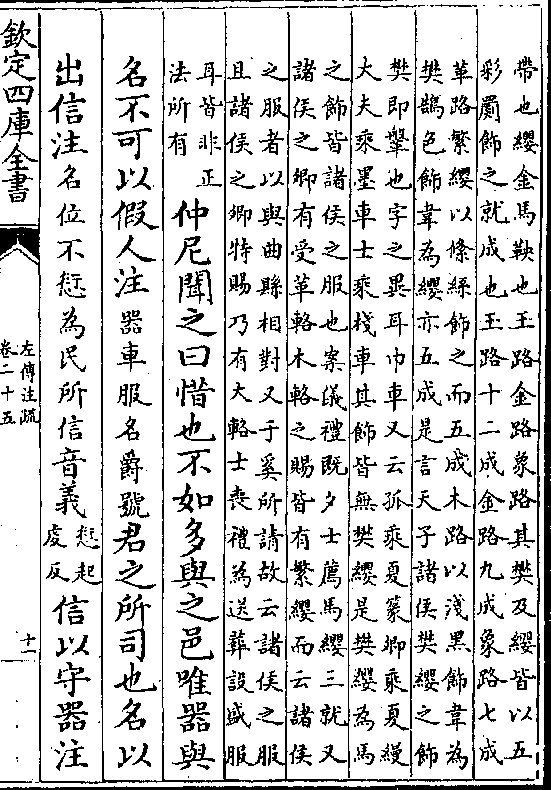 帶也纓金馬鞅也玉路金路象路其樊及纓皆以五
彩罽飾之就成也玉路十二成金路九成象路七成
革路繁纓以條絲飾之而五成木路以淺黑飾韋為
樊鵠色飾韋為纓亦五成是言天子諸侯樊纓之飾
樊即鞶也字之異耳巾車又云孤乘夏篆卿乘夏縵
大夫乘墨車士乘棧車其飾皆無樊纓是樊纓為馬
之飾皆諸侯之服也案儀禮既夕士薦馬纓三就又
諸侯之卿有受革輅木輅之賜皆有繁纓而云諸侯
之服者以與曲縣相對又于奚所請故云諸侯之服
且諸侯之卿特賜乃有大輅士喪禮為送葬設盛服
耳皆非正
法所有
仲尼聞之曰惜也不如多與之邑唯器與
名不可以假人注器車服名爵號君之所司也名以
出信注名位不愆為民所信音義愆起虔反信以守器注
欽定四庫全書
左傳注疏
卷二十五
十一